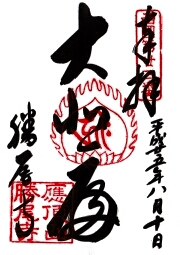 奉拝
平成十五年八月十日
大悲殿
勝尾寺
應頂山
勝尾寺